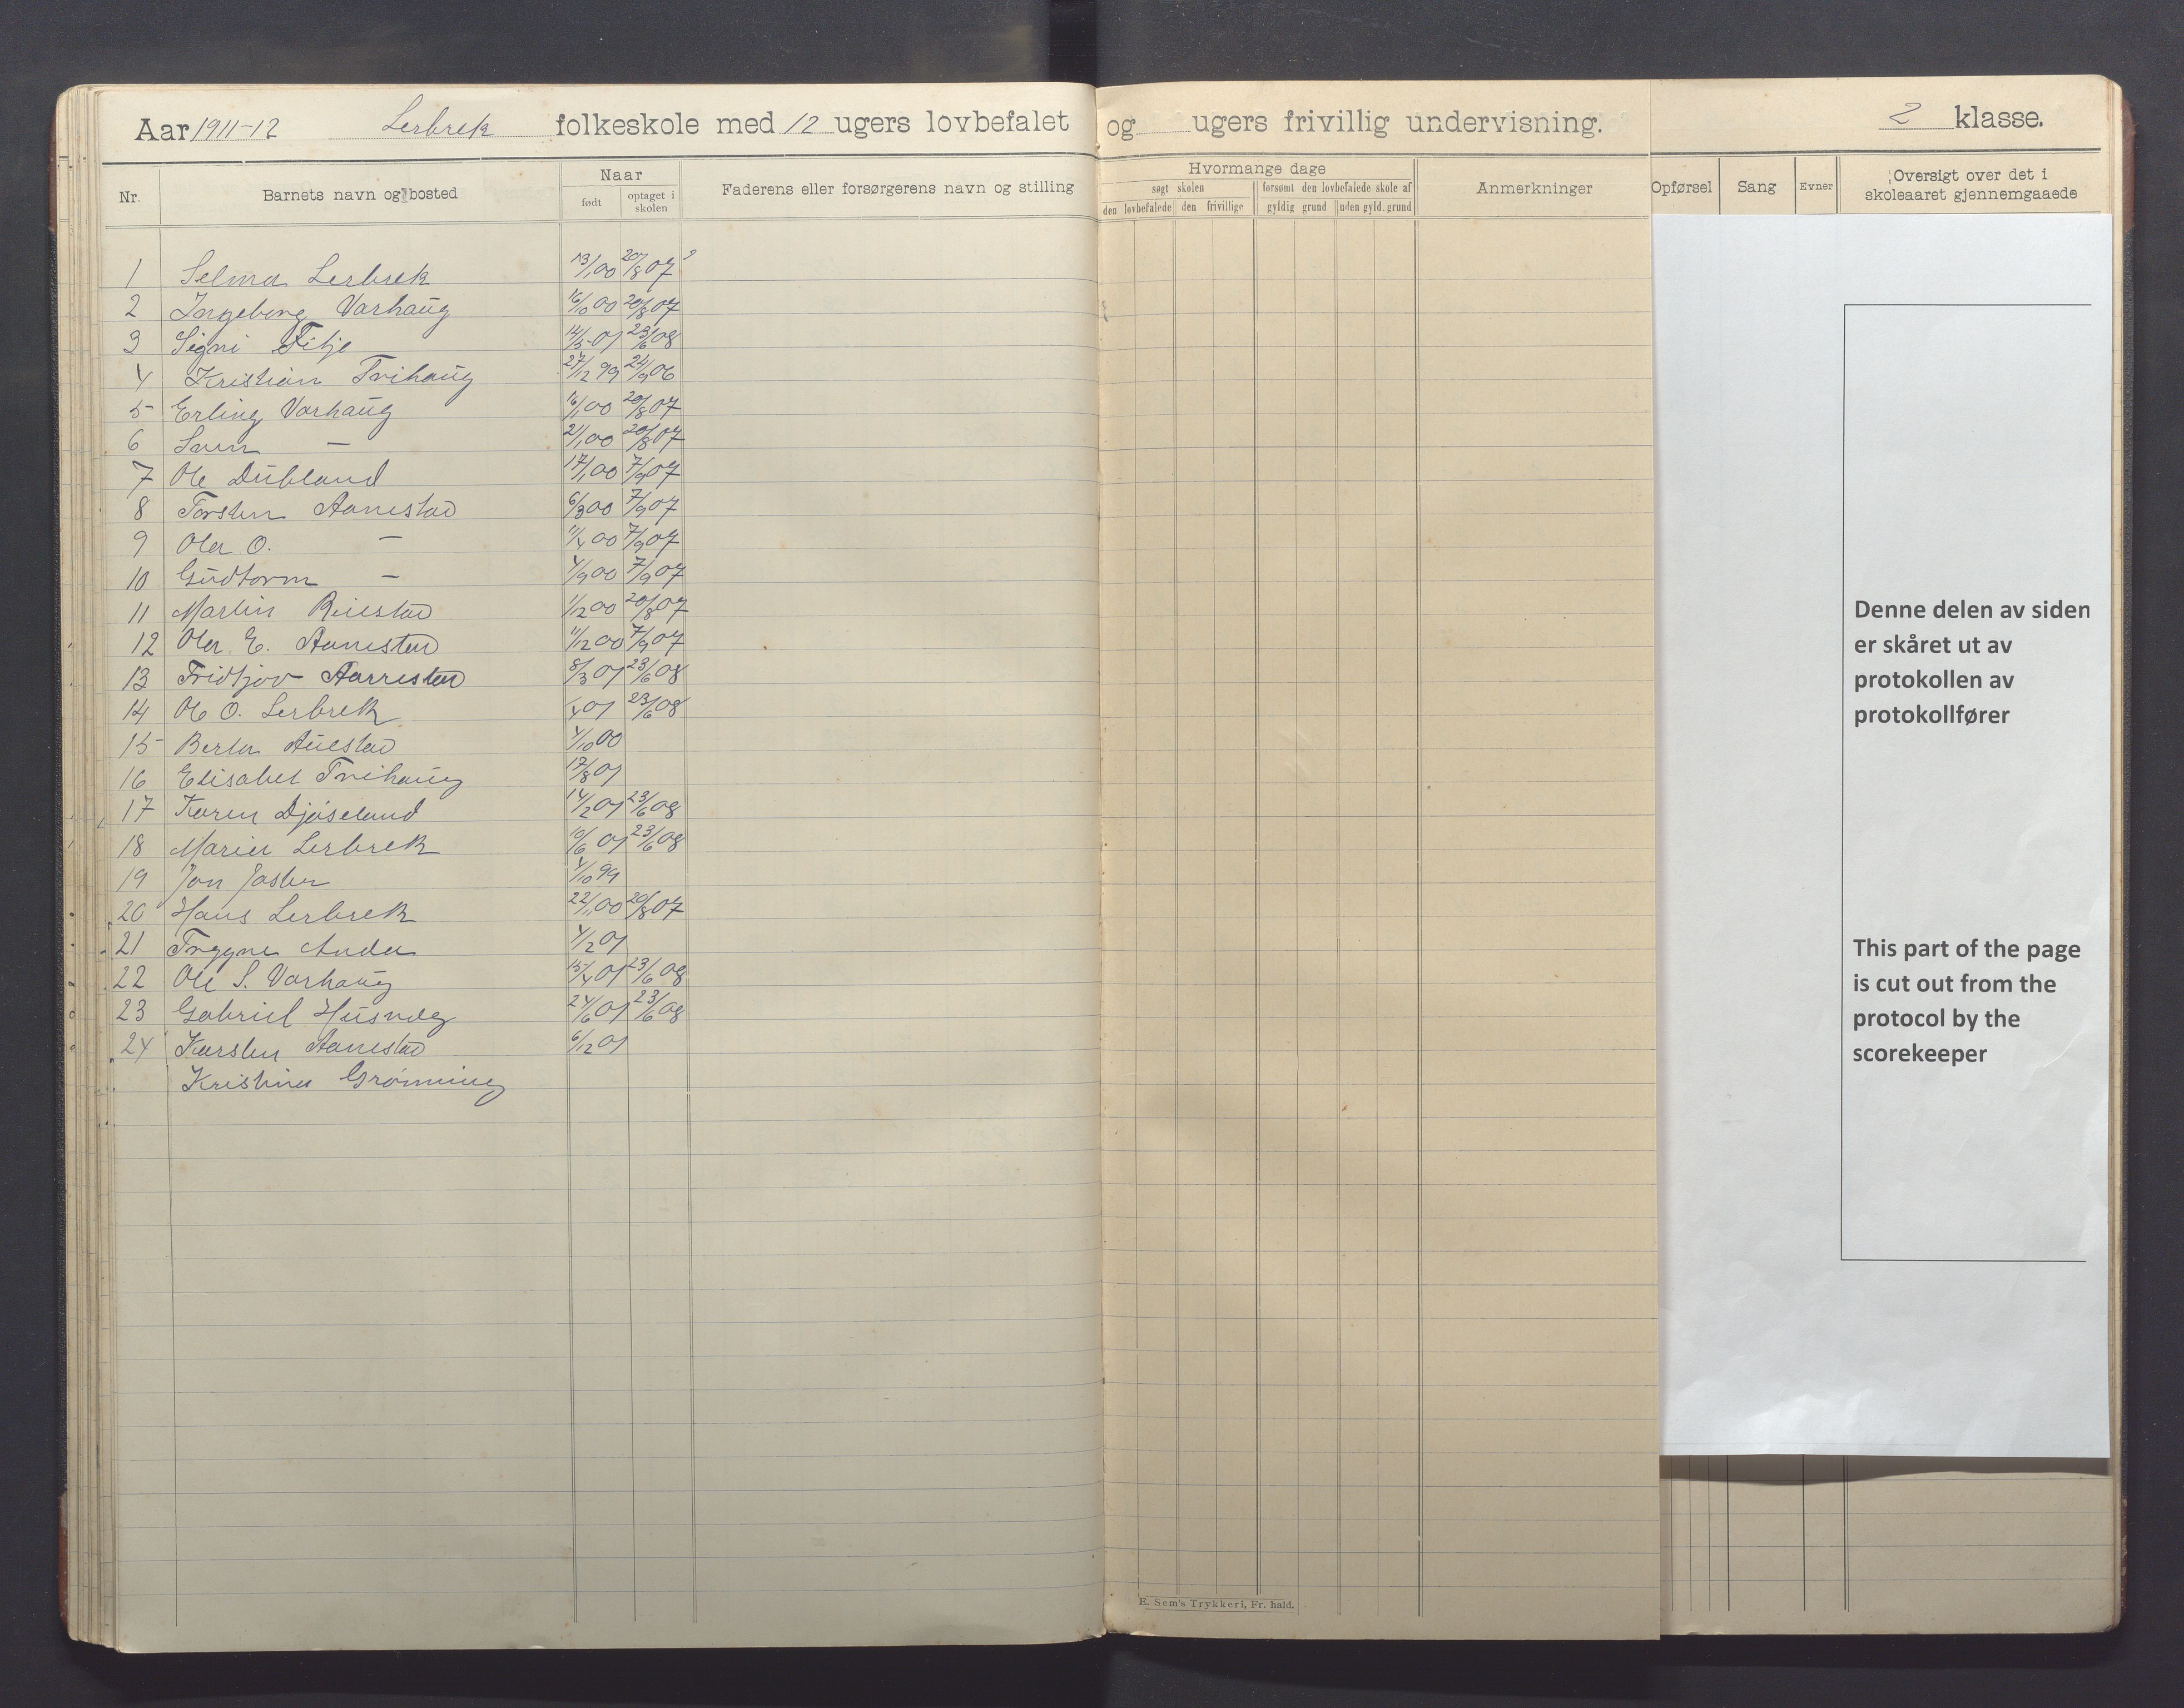 Aar 1911-12 Lerbrek folkeskole med 12 ugers lovbefalet og ugers frivillig undervisning. 2 klasse.
Nr. Barnets navn og bosted Naar født optaget i skolen Faderens eller forsørgerens navn og stilling Hvormange dage søgt skolen den lovbefalede den frivillige forsømt den lovbefalede skole af gyldig grund uden gyld. grund Anmerkninger Opførsel Sang Evner Oversigt over det i skoleaaret gjennemgaaede
1 Selma Lerbrek 13/1 00 20/8 07
2 Ingeborg Varhaug 16/10 00 20/8 07
3 Signi Filje 14/5 01 23/6 08
4 Kristian Trihaug 27/12 99 24/9 06
5 Erling Varhaug 16/1 00 20/8 07
6 Sven — 21/1 00 20/8 07
7 Ole Dubland 17/1 00 7/9 07
8 Torsten Aanestad 6/3 00 7/9 07
9 Ola O. — 11/4 00 7/9 07
10 Gudtorm — 4/9 00 7/9 07
11 Martin Riestad 1/12 00 20/8 07
12 Ola E. Aanestad 11/12 00 7/9 07
13 Fridtjov Aarrestad 8/3 01 23/6 08
14 Ole O. Lerbrek /4 01 23/6 08
15 Berta Auestad 4/10 00
16 Elisabet Trihaug 17/8 01
17 Karen Djøseland 14/2 01 23/6 08
18 Marie Lerbrek 10/6 01 23/6 08
19 Jon 4/10 99
20 Hans Lerbrek 22/1 00 20/8 07
21 Trygve Anda 4/2 01
22 Ole S. Varhaug 15/4 01 23/6 08
23 Gabriel Husveg 24/6 01 23/6 08
24 Karsten Aanestad 6/12 01
Kristine Grønning
Denne delen av siden
er skåret ut av
protokollen av
protokollfører
This part of the page
is cut out from the
protocol by the
scorekeeper
E. Sem's Trykkeri, Fr. hald.